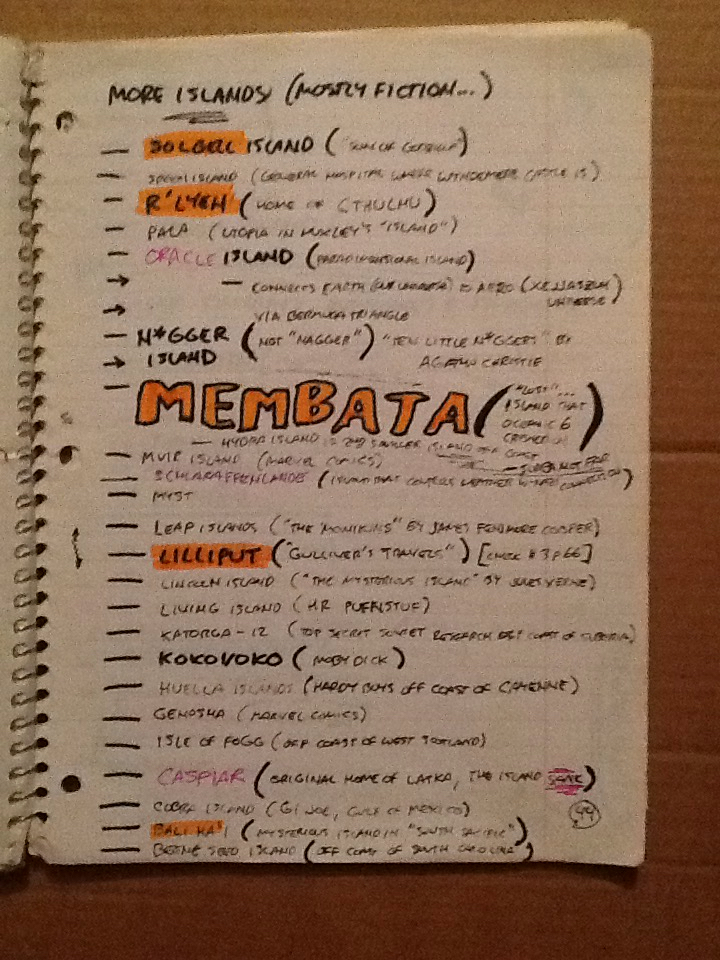 MORE ISLANDS (MOSTLY FICTION...)
— SOLGELL ISLAND ("SON OF GODZILLA")
— SPOON ISLAND (GENERAL HOSPITAL WHERE WYNDEMERE CASTLE IS)
— R'LYEH (HOME OF CTHULHU)
— PALA (UTOPIA IN HUXLEY'S "ISLAND")
— ORACLE ISLAND (PARADIMENSIONAL ISLAND)
→ — CONNECTS EARTH (OUR UNIVERSE) TO AERO (
UNIVERSE)
→ VIA BERMUDA TRIANGLE
— N*GGER (NOT "NAGGER") "TEN LITTLE N*GGERS" BY
→ ISLAND AGATHA CHRISTIE
— MEMBATA ("LOST"...
ISLAND THAT
OCEANIC 6
CRASHED ON)
— HYDRA ISLAND IS 2ND SMALLER ISLAND OFF COAST
— MUIR ISLAND (MARVEL COMICS)
— SCHLARAFFENLANDE (ISLAND THAT CONNECTION)
— MYST
— LEAP ISLANDS ("THE MONIKINS" BY JAMES FENIMORE COOPER)
— LILLIPUT ("GULLIVER'S TRAVELS") [CHECK #3 P66]
— LINCOLN ISLAND ("THE MYSTERIOUS ISLAND" BY JULES VERNE)
— LIVING ISLAND (HR PUFFNSTUF)
— KATORGA-12 (TOP SECRET SOVIET RESEARCH OFF COAST OF SIBERIA)
— KOKOVOKO (MOBY DICK)
— HUELLA ISLANDS (HARDY BOYS OFF COAST OF CAYENNE)
— GENOSHA (MARVEL COMICS)
— ISLE OF FOGG (OFF COAST OF WEST SCOTLAND)
— CASPIAR (ORIGINAL HOME OF LATKA, THE ISLAND SANK)
— COBRA ISLAND (GI JOE, GULF OF MEXICO)
— BALI HA'I (MYSTERIOUS ISLAND IN "SOUTH PACIFIC")
— BEENE SEED ISLAND (OFF COAST OF SOUTH CAROLINA)
44